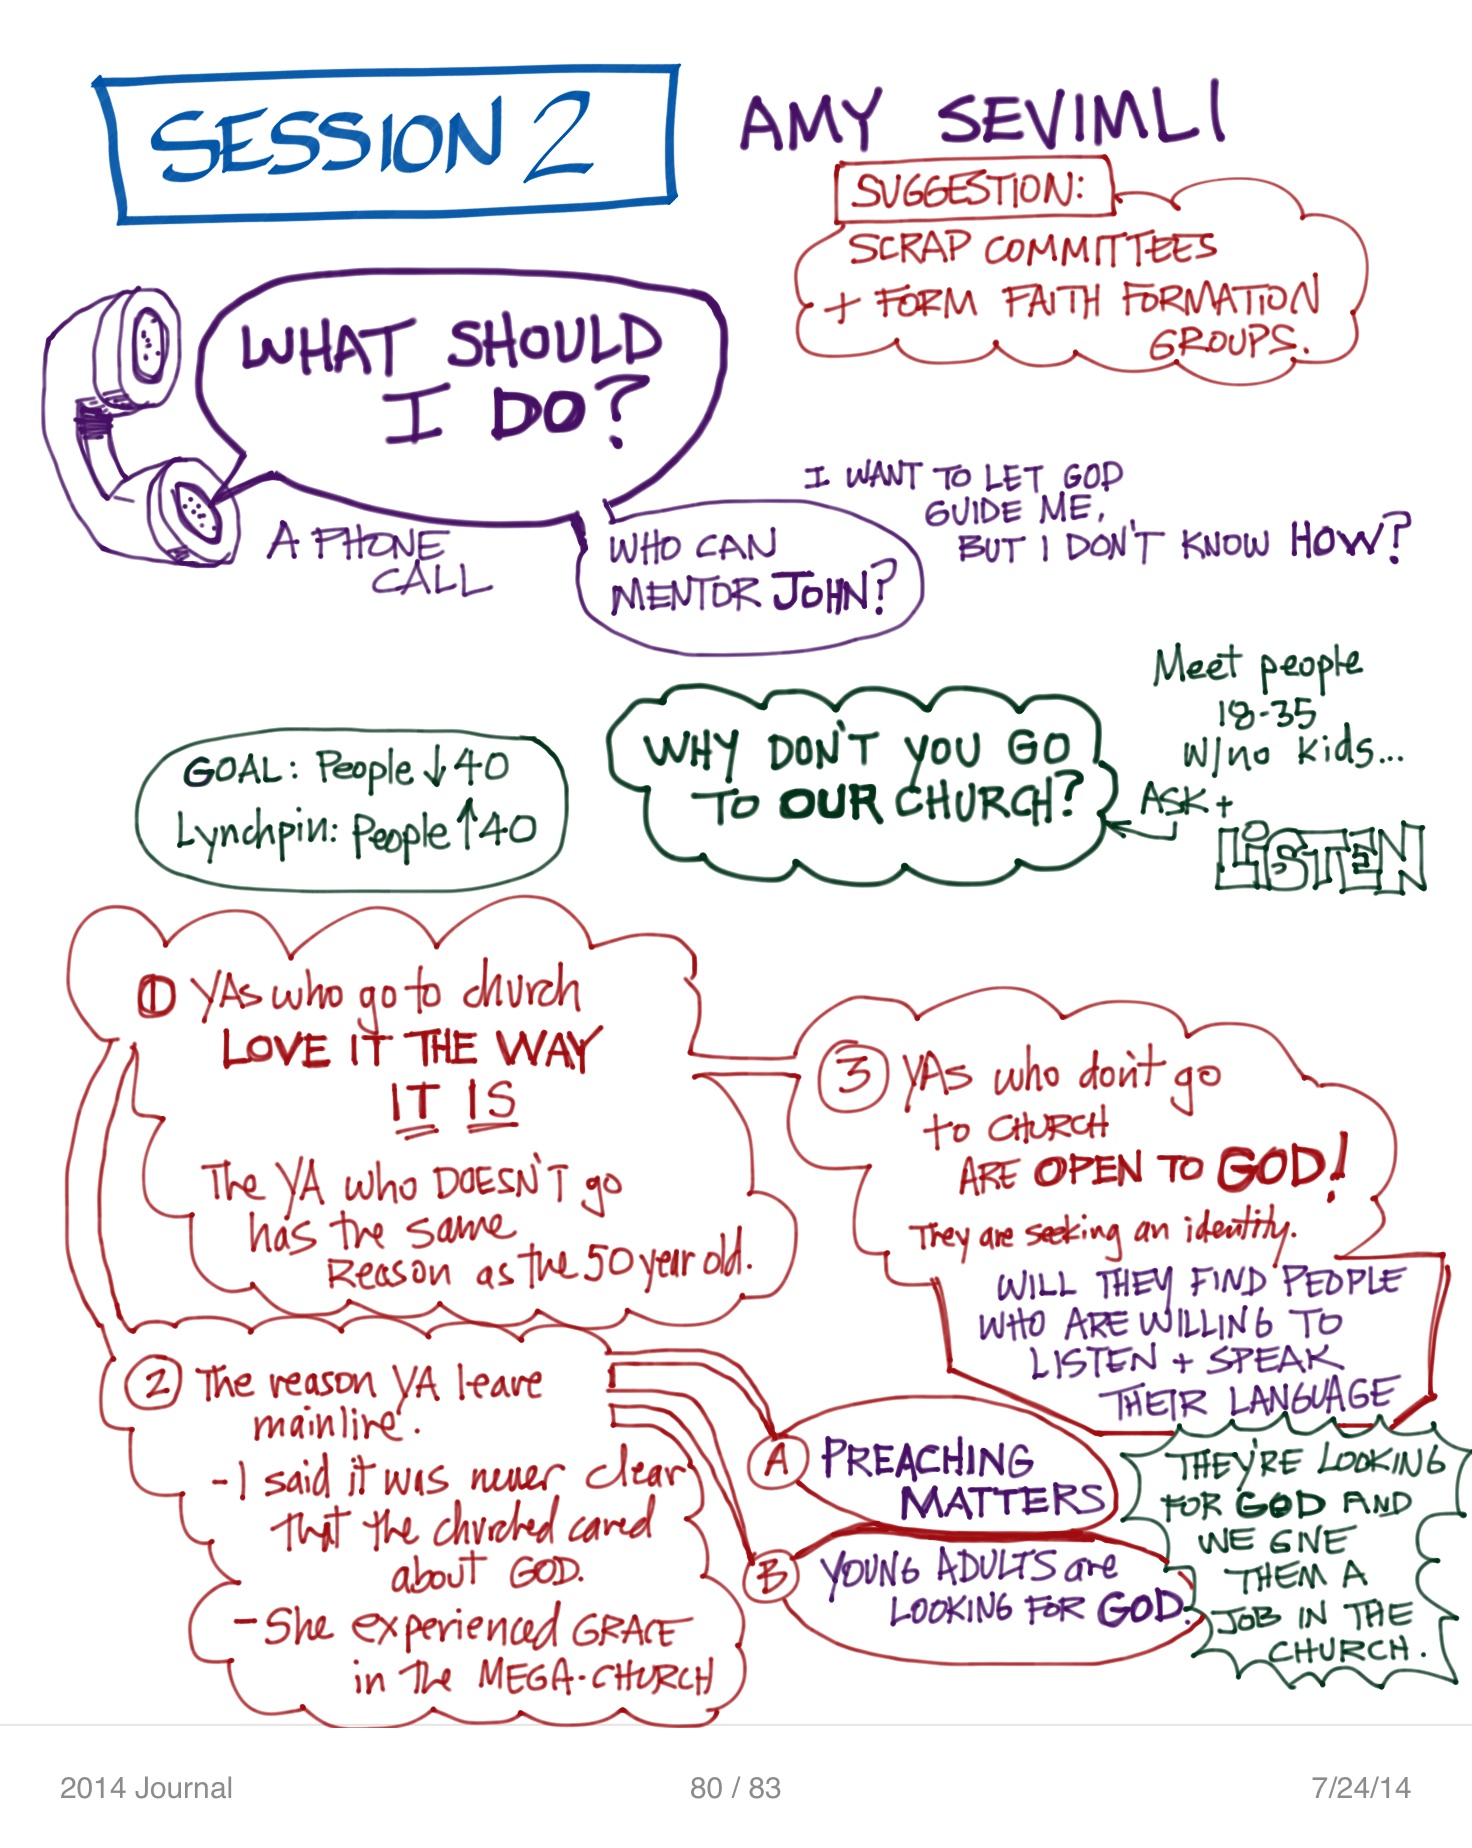 SESSION 2
AMY SEVIMLI
SUGGESTION:
SCRAP COMMITTEES
+ FORM FAITH FORMATION
GROUPS.
WHAT SHOULD
I DO?
A PHONE
CALL
WHO CAN
MENTOR JOHN?
I WANT TO LET GOD
GUIDE ME,
BUT I DON'T KNOW HOW?
GOAL: People ↓40
Lynchpin: People ↑40
WHY DON'T YOU GO
TO OUR CHURCH?
Meet people
18-35
w/no kids...
ASK +
LISTEN
① YAs who go to church
LOVE IT THE WAY
IT IS
The YA who DOESN'T go
has the same
Reason as the 50 year old.
② The reason YA leave
mainline.
- I said it was never clear
that the churched cared
about GOD.
- She experienced GRACE
in the MEGA-CHURCH
③ YAs who don't go
to CHURCH
ARE OPEN TO GOD!
They are seeking an identity.
WILL THEY FIND PEOPLE
WHO ARE WILLING TO
LISTEN + SPEAK
THEIR LANGUAGE
A PREACHING
MATTERS
B YOUNG ADULTS are
LOOKING FOR GOD.
THEY'RE LOOKING
FOR GOD AND
WE GIVE
THEM A
JOB IN THE
CHURCH.
2014 Journal
80 / 83
7/24/14